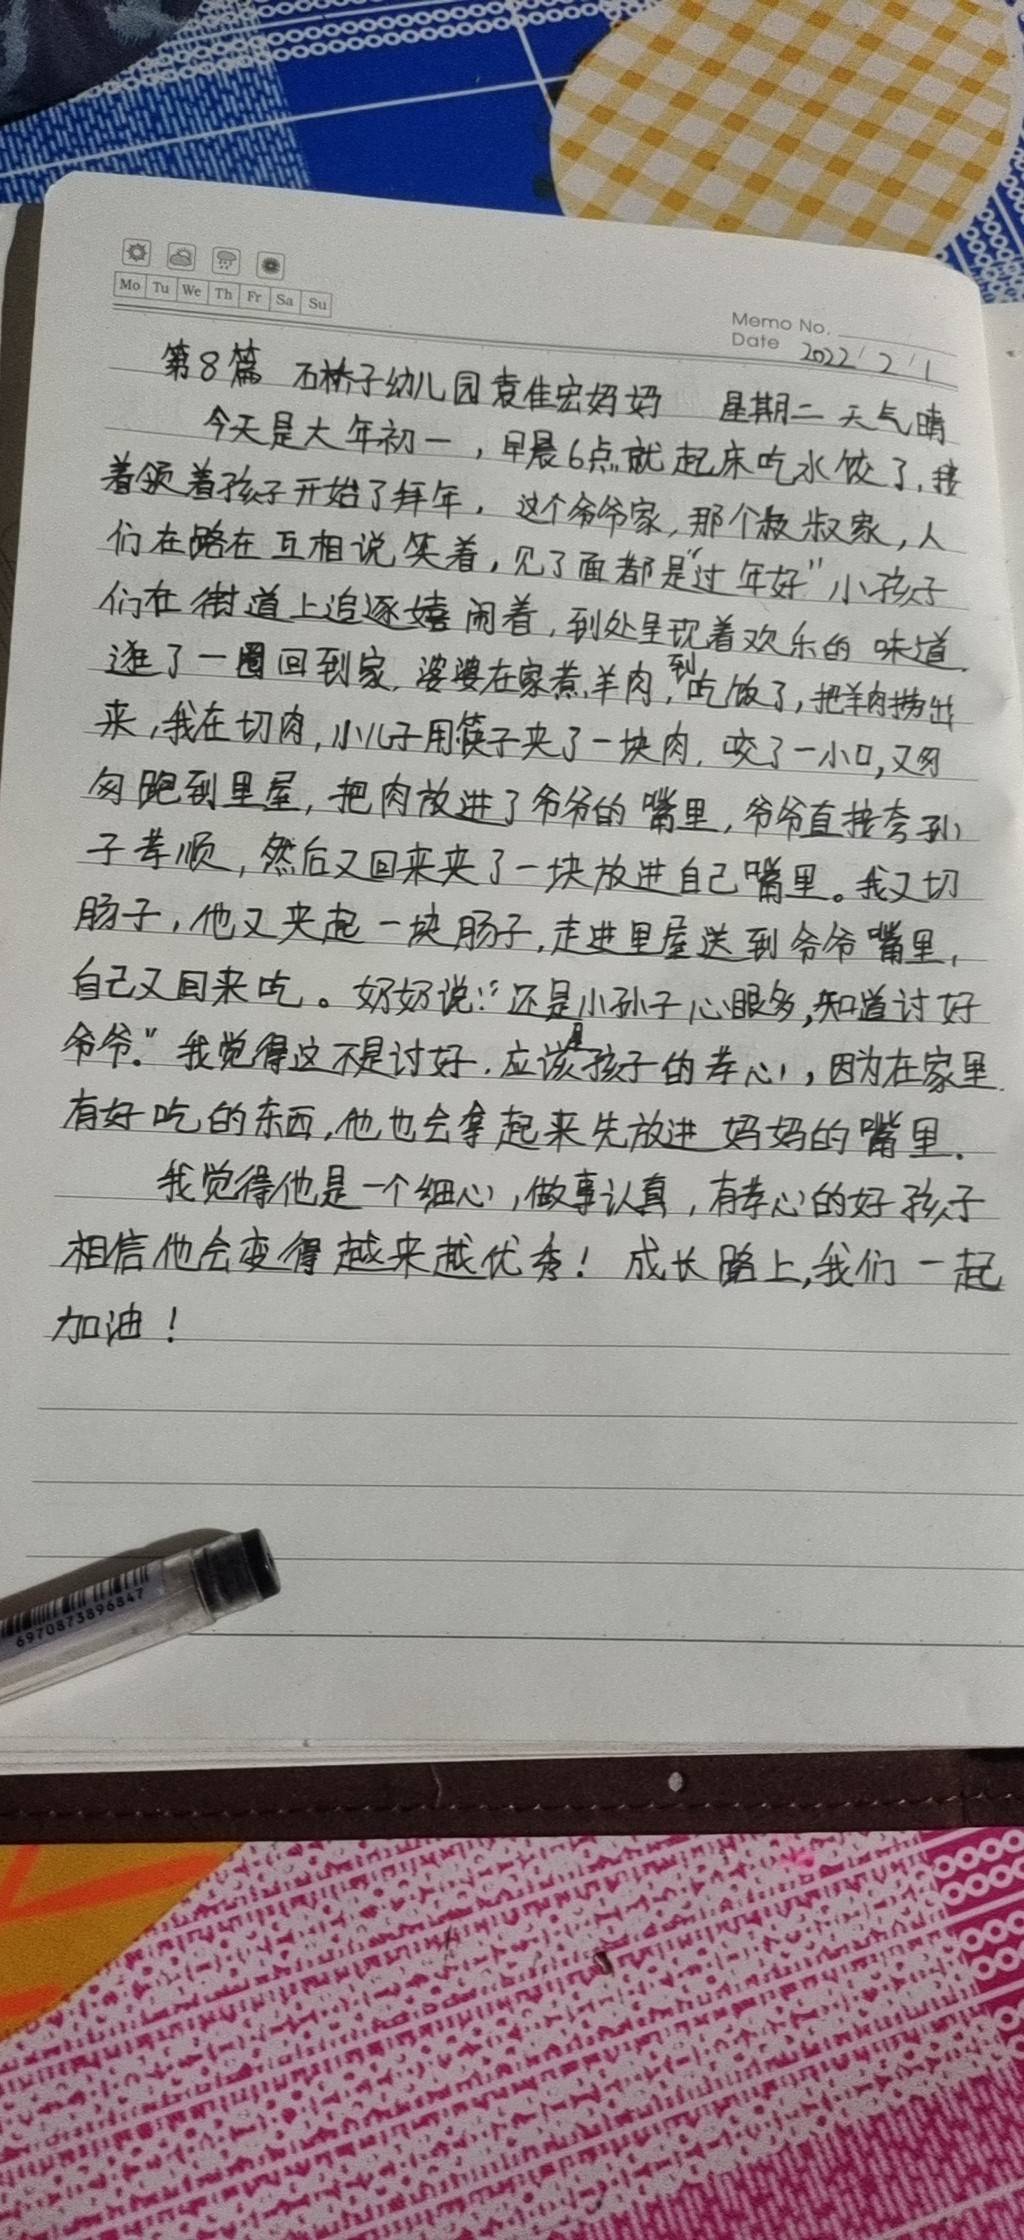 Mo Tu We Th Fr Sa Su
Memo No.
Date 2022/2/1
第8篇 石桥子幼儿园袁佳宏妈妈 星期二 天气晴
今天是大年初一，早晨6点就起床吃水饺了，接
着领着孩子开始了拜年，这个爷爷家，那个叔叔家，人
们在路在互相说笑着，见了面都是“过年好”小孩子
们在街道上追逐嬉闹着，到处呈现着欢乐的味道.
逛了一圈回到家，婆婆在家煮羊肉，到吃饭了，把羊肉捞出
来，我在切肉，小儿子用筷子夹了一块肉，咬了一小口，又匆
匆跑到里屋，把肉放进了爷爷的嘴里，爷爷直接夸孙
子孝顺，然后又回来夹了一块放进自己嘴里。我又切
肠子，他又夹起一块肠子，走进里屋送到爷爷嘴里，
自己又回来吃。奶奶说：“还是小孙子心眼多，知道讨好
爷爷。”我觉得这不是讨好，应该是孩子的孝心，因为在家里
有好吃的东西，他也会拿起来先放进妈妈的嘴里.
我觉得他是一个细心，做事认真，有孝心的好孩子
相信他会变得越来越优秀！成长路上，我们一起
加油！
6970873896847